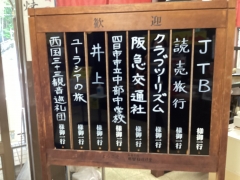 歓迎
JTB 様御一行
読売旅行 様御一行
クラブツーリズム 様御一行
阪急交通社 様御一行
四日市市立中部中学校 様御一行
井上 様御一行
ユーラシアの旅 様御一行
西国三十三観音巡礼団 様御一行